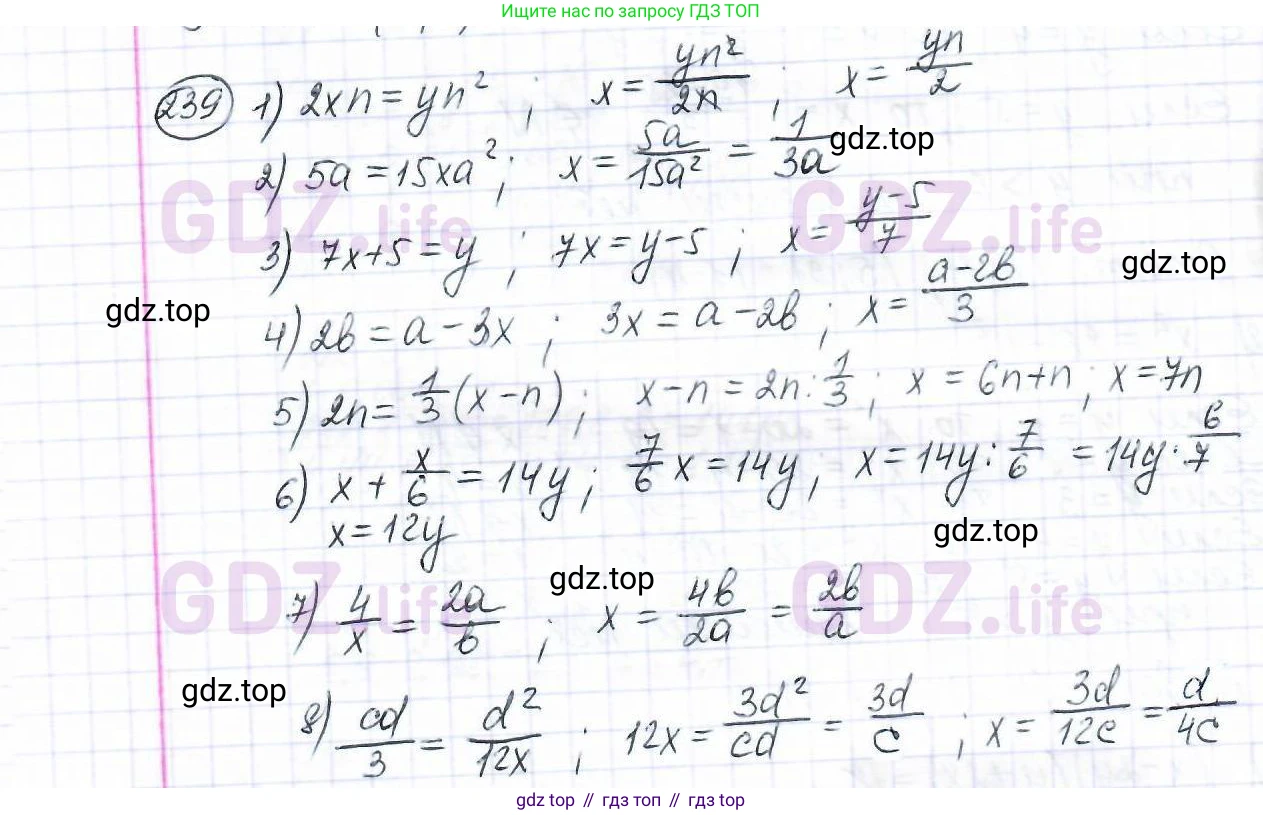 Ищите нас по запросу ГДЗ ТОП
239 1) 2xn = yn² ; x = yn²/2n ; x = yn/2
2) 5a = 15xa² ; x = 5a/15a² = 1/3a
gdz.top
GDZ.life GDZ.life
3) 7x+5 = y ; 7x = y-5 ; x = y-5/7
gdz.top
gdz.top
4) 2b = a - 3x ; 3x = a - 2b ; x = a-2b/3
5) 2n = 1/3 (x - n) ; x - n = 2n : 1/3 ; x = 6n+n ; x = 7n
6) x + x/6 = 14y ; 7/6 x = 14y ; x = 14y : 7/6 = 14y · 6/7
x = 12y
gdz.top
gdz.top
GDZ.life GDZ.life
7) 4/x = 2a/b ; x = 4b/2a = 2b/a
gdz.top
8) cd/3 = d²/12x ; 12x = 3d²/cd = 3d/c ; x = 3d/12c = d/4c
gdz.top // гдз топ // gdz.top